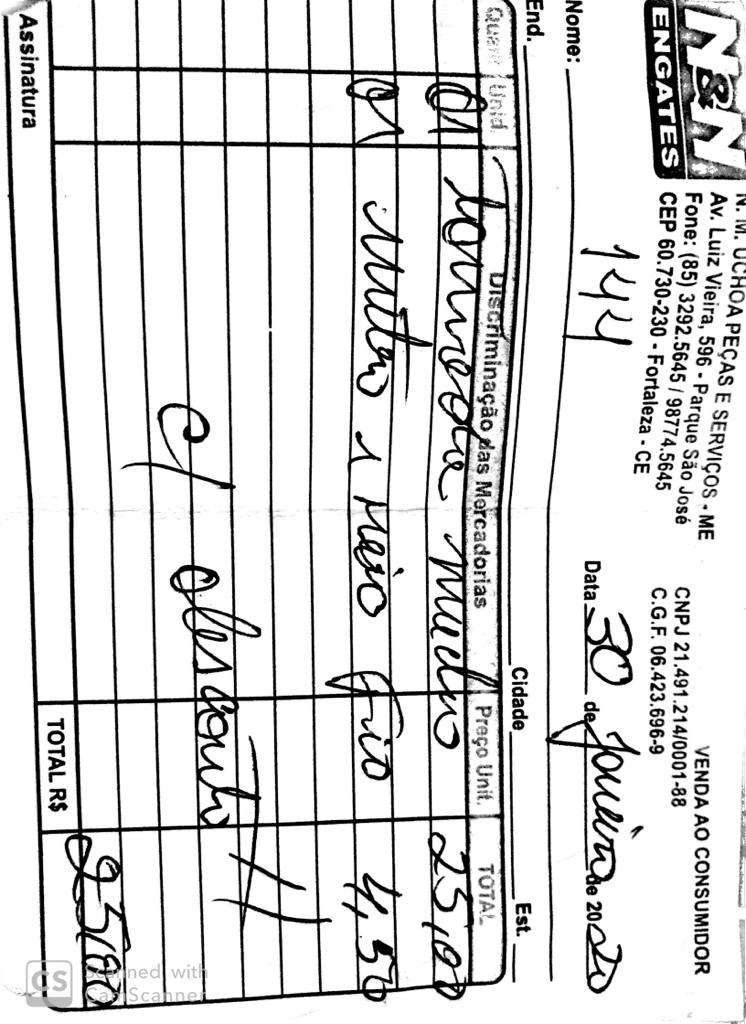 N&N
ENGATES
N. M. UCHOA PEÇAS E SERVIÇOS - ME
Av. Luiz Vieira, 596 - Parque São José
Fone: (85) 3292.5645 / 98774.5645
CEP 60.730-230 - Fortaleza - CE
VENDA AO CONSUMIDOR
CNPJ 21.491.214/0001-88
C.G.F. 06.423.696-9
144
Data 30 de Janeiro de 2020
Nome:
End. Cidade Est.
Quant Unid. Discriminação das Mercadorias Preço Unit. TOTAL
01 tomada macho 25,00
01 metro meio fio 4,50
c/ desconto
TOTAL R$ 25,00
Assinatura
CS Scanned with
CamScanner